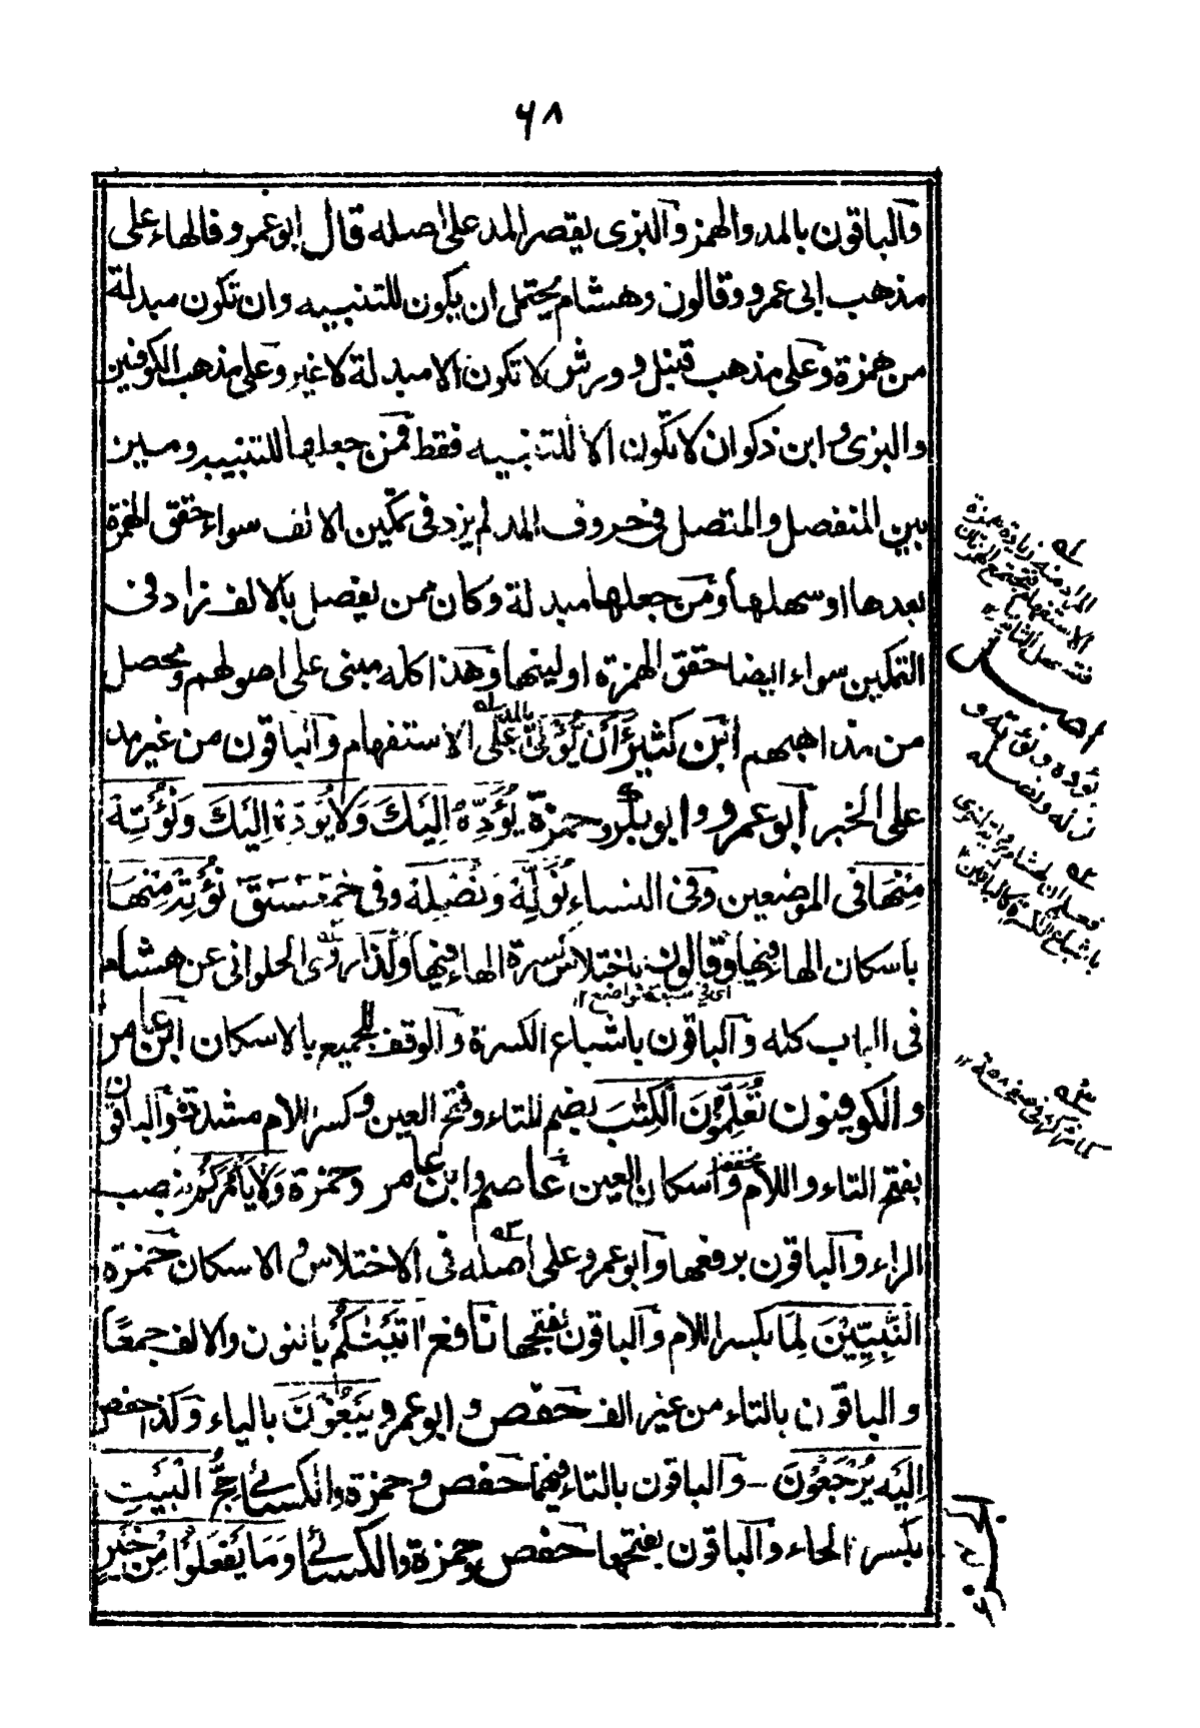 ۶۸
والباقون بالمد والهمز والبزى يقصر المد على اصله قال ابو عمرو فالهاء على
مذهب ابى عمرو وقالون وهشام يحتمل ان يكون للتنبيه وان تكون مبدلة
من همزة وعلى مذهب قنبل وورش لا تكون الا مبدلة لا غير وعلى مذهب الكوفيين
والبزى وابن ذكوان لا تكون الا للتنبيه فقط فمن جعلها للتنبيه وميز
بين المنفصل والمتصل فى حروف المد لم يزد فى تمكين الالف سواء حقق الهمزة
بعدها او سهلها ومن جعلها مبدلة وكان ممن يفصل بالالف زاد فى
التمكين سواء ايضا حقق الهمزة او لينها وهذا كله مبنى على اصولهم ومحصل
من مذاهبهم ابن كثير أَنْ يُّؤْتَىٰ بالمد على الاستفهام والباقون من غير مد
على الخبر ابو عمرو وابو بكر وحمزة يُؤَدِّهْ اِلَيْكَ وَلَا يُؤَدِّهْ اِلَيْكَ وَنُؤْتِهْ
مِنْهَا فى الموضعين وفى النساء نُوَلِّهْ وَنُصْلِهْ وفى حٰمٓعٓسٓقٓ نُؤْتِهْ مِنْهَا
باسكان الهاء فيها وقالون باختلاس كسرة الهاء فيها وكذا روى الحلوانى عن هشام
اى فى سبعة مواضع ۱۲
فى الباب كله والباقون باشباع الكسرة والوقف للجميع بالاسكان ابن عامر
والكوفيون تُعَلِّمُوْنَ الْكِتٰبَ بضم التاء وفتح العين وكسر اللام مشددة والباقون
بفتح التاء واللام مخففة واسكان العين عاصم وابن عامر وحمزة وَلَا يَأْمُرَكُمْ بنصب
الراء والباقون برفعها وابو عمرو على اصله فى الاختلاس والاسكان حمزة
النَّبِيّٖنَ لِمَا بكسر اللام والباقون بفتحها نافع اٰتَيْنٰكُمْ بالنون والالف جمعًا
والباقون بالتاء من غير الف حفص وابو عمرو يَبْغُوْنَ بالياء وكذا حفص
اِلَيْهِ يُرْجَعُوْنَ - والباقون بالتاء فيهما حفص وحمزة والكسائى حِجُّ الْبَيْتِ
بكسر الحاء والباقون بفتحها حفص وحمزة والكسائى وَمَا يَفْعَلُوْا مِنْ خَيْرٍ